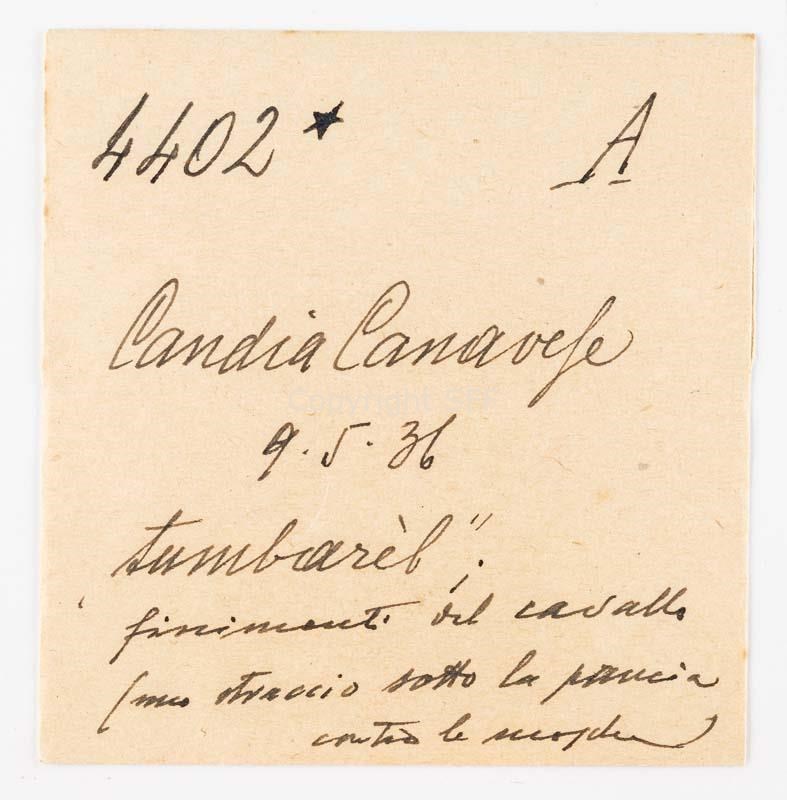 4402* A
Candia Canavese
9.5.36
tumbarèl",
finimenti del cavallo
(uno straccio sotto la pancia
contro le mosche)